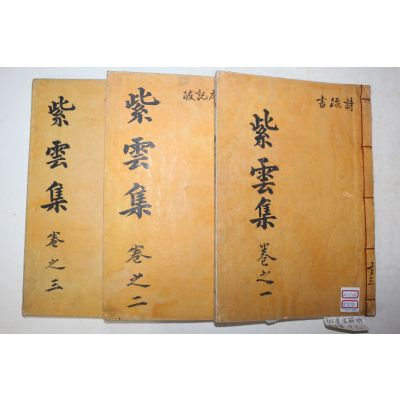 詩疏書
紫雲集
卷之一
序記跋
紫雲集
卷之二
紫雲集
卷之三
共三